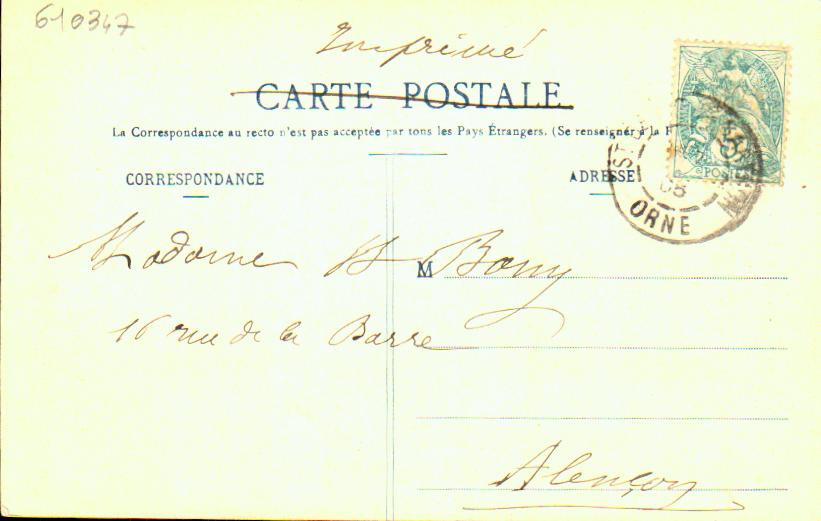 610347
Imprimé
CARTE POSTALE
La Correspondance au recto n'est pas acceptée par tous les Pays Étrangers. (Se renseigner à la P
CORRESPONDANCE
ADRESSE
Madame H Bony
M
16 rue de la Barre
Alençon
ORNE
08
5
POSTES